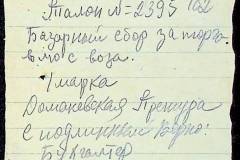 Талон №=2395
Базарный сбор за торго-
влю с воза.
1 марка
Доманевская Претура
С подлинным верно:
Бухгалтер